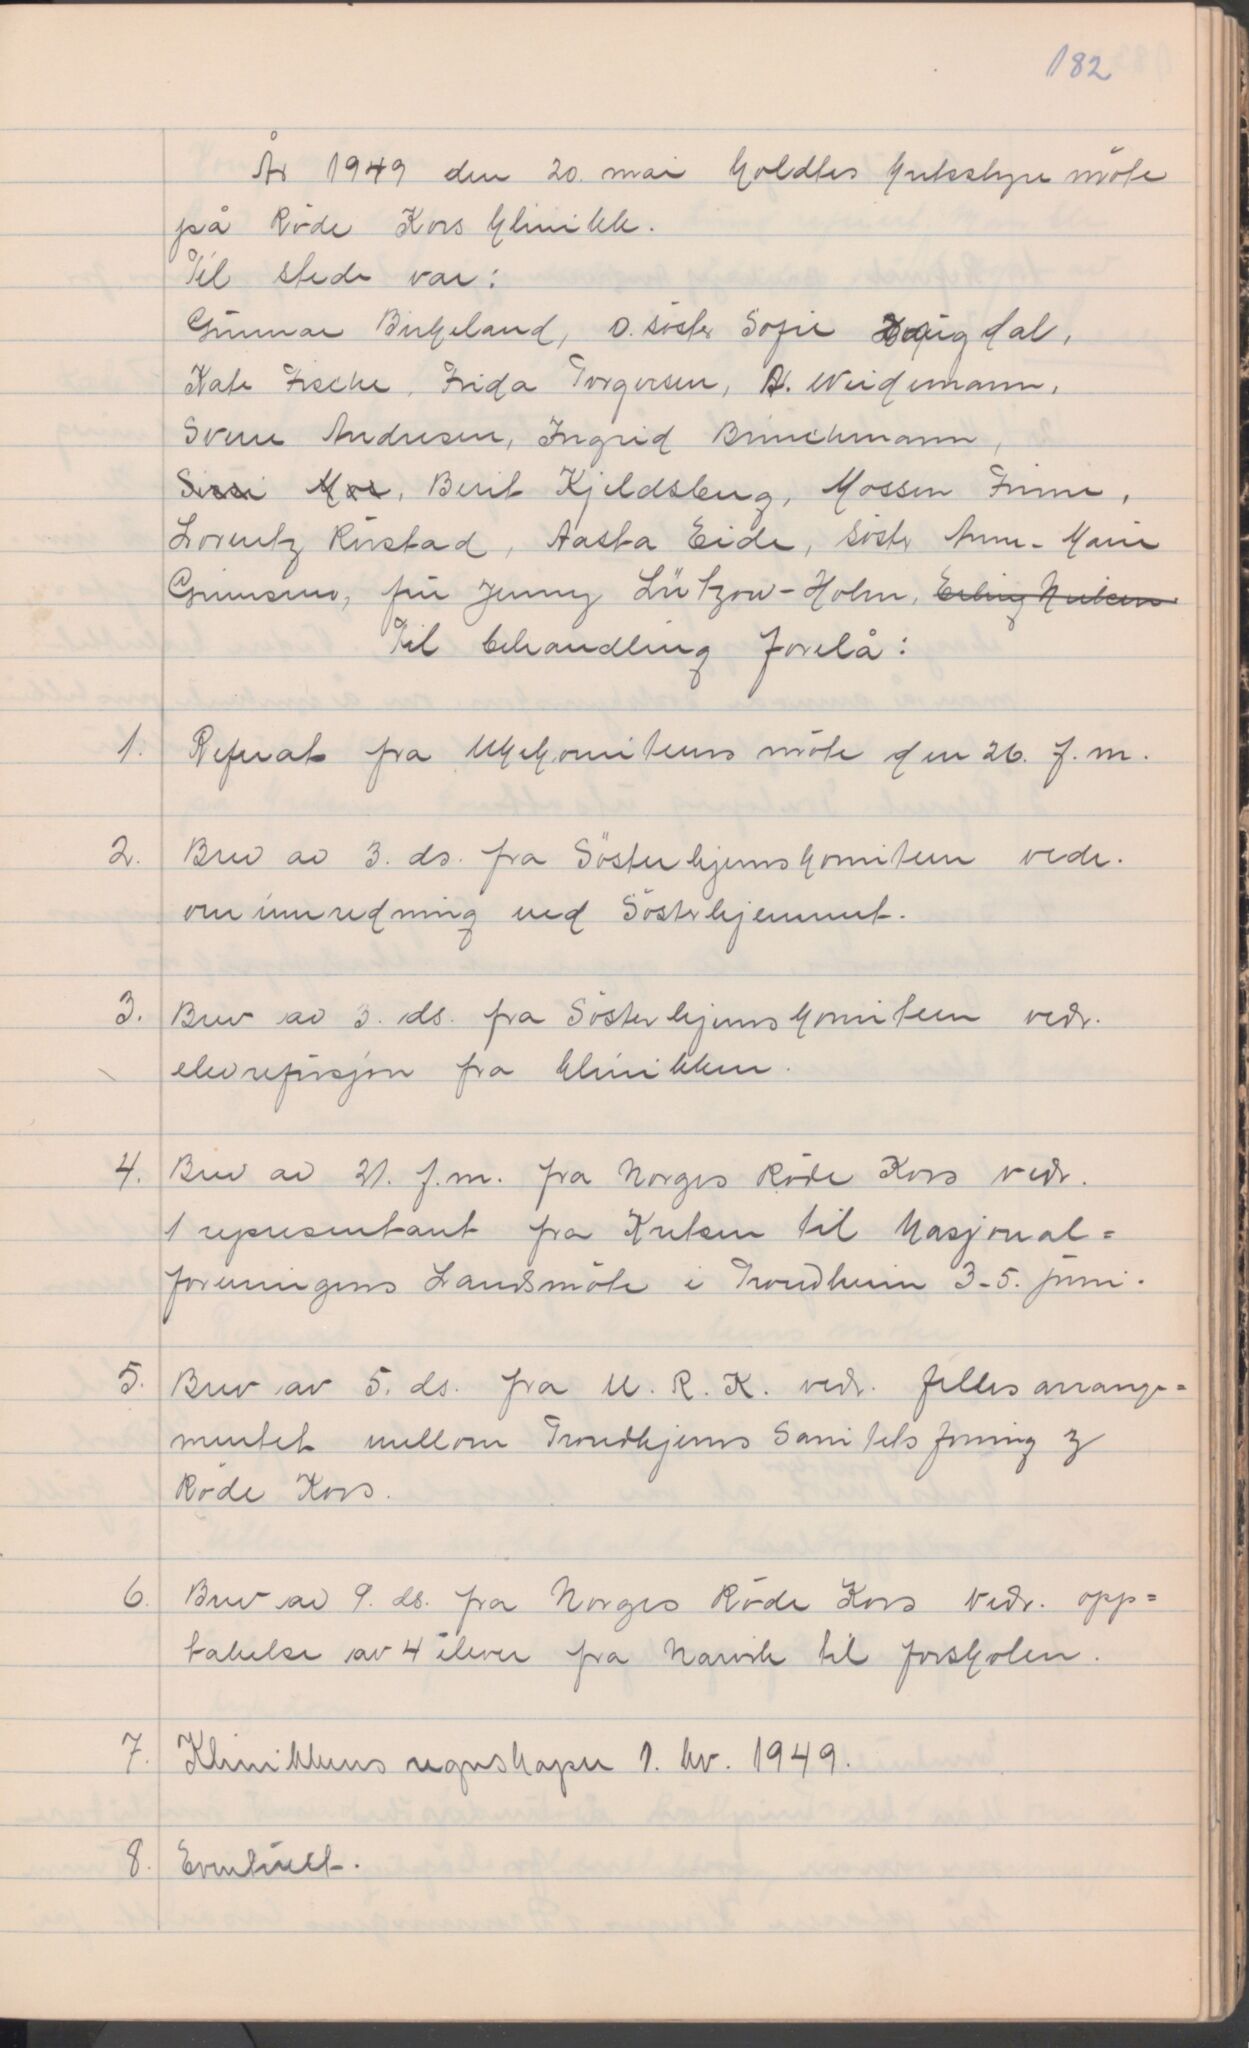 182
År 1949 den 20. mai holdtes kretsstyremöte
på Röde Kors klinikk.
Til stede var:
Gunnar Birkeland, o. söster Sofie
Kate Fische, Frida Torgersen, A. Weidemann,
Sverre Andresen, Ingrid Brinchmann,
Sissi Moe, Berit Kjeldsberg, Mossen Finne,
Lorentz Rörstad, Aasta Eide, söster Anne-Marie
Grimsmo, fru Jenny Lützow-Holm, Erling Nielsen
Til behandling forelå:
1. Referat fra Ukekomiteens möte den 26. f.m.
2. Brev av 3. ds. fra Södsterhjemskomiteen vedr.
ominnredning ved Sösterhjemmet.
3. Brev av 3. ds. fra Sösterhjemskomiteen vedr.
elevrefusjon fra klinikken.
4. Brev av 21. f.m. fra Norges Röde Kors vedr.
1 representant fra Kretsen til Nasjonal=
foreningens Landsmöte i Trondheim 3-5. juni.
5. Brev av 5. ds. fra U. R. K. vedr. felles arrange=
mentet mellom Trondhjems Sanitetsforning &
Röde Kors.
6. Brev av 9. ds. fra Norges Röde Kors vedr. opp=
takelse av 4 elever fra Narvik til forskolen.
7. Klinikkens regnskaper 1. kv. 1949.
8. Eventuelt.